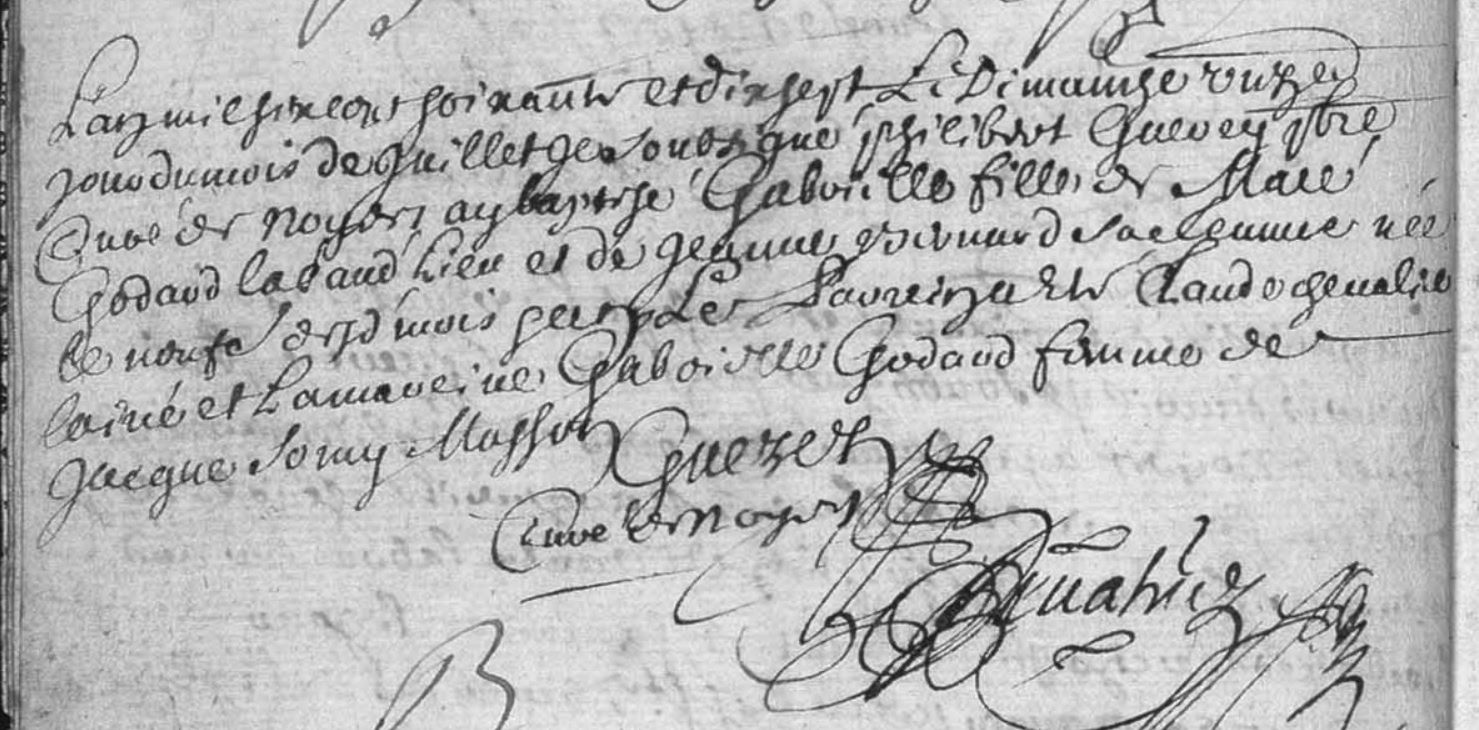 Lan mil six cent soixante et dix sept Le Dimanche unze
jour du mois de Juillet Je soubsigné philibert Guerey pbre
Curé de Noyers ay baptisé Gabrielle fille de Macé
Godard laband hieu et de Jeanne Bernard sa femme née
le neufe desd mois Le parein Mtre Claude chevalier
lainé et La mareine Gabrielle Godard femme de
Jacque Masson
Guerey
Curé de Noyers